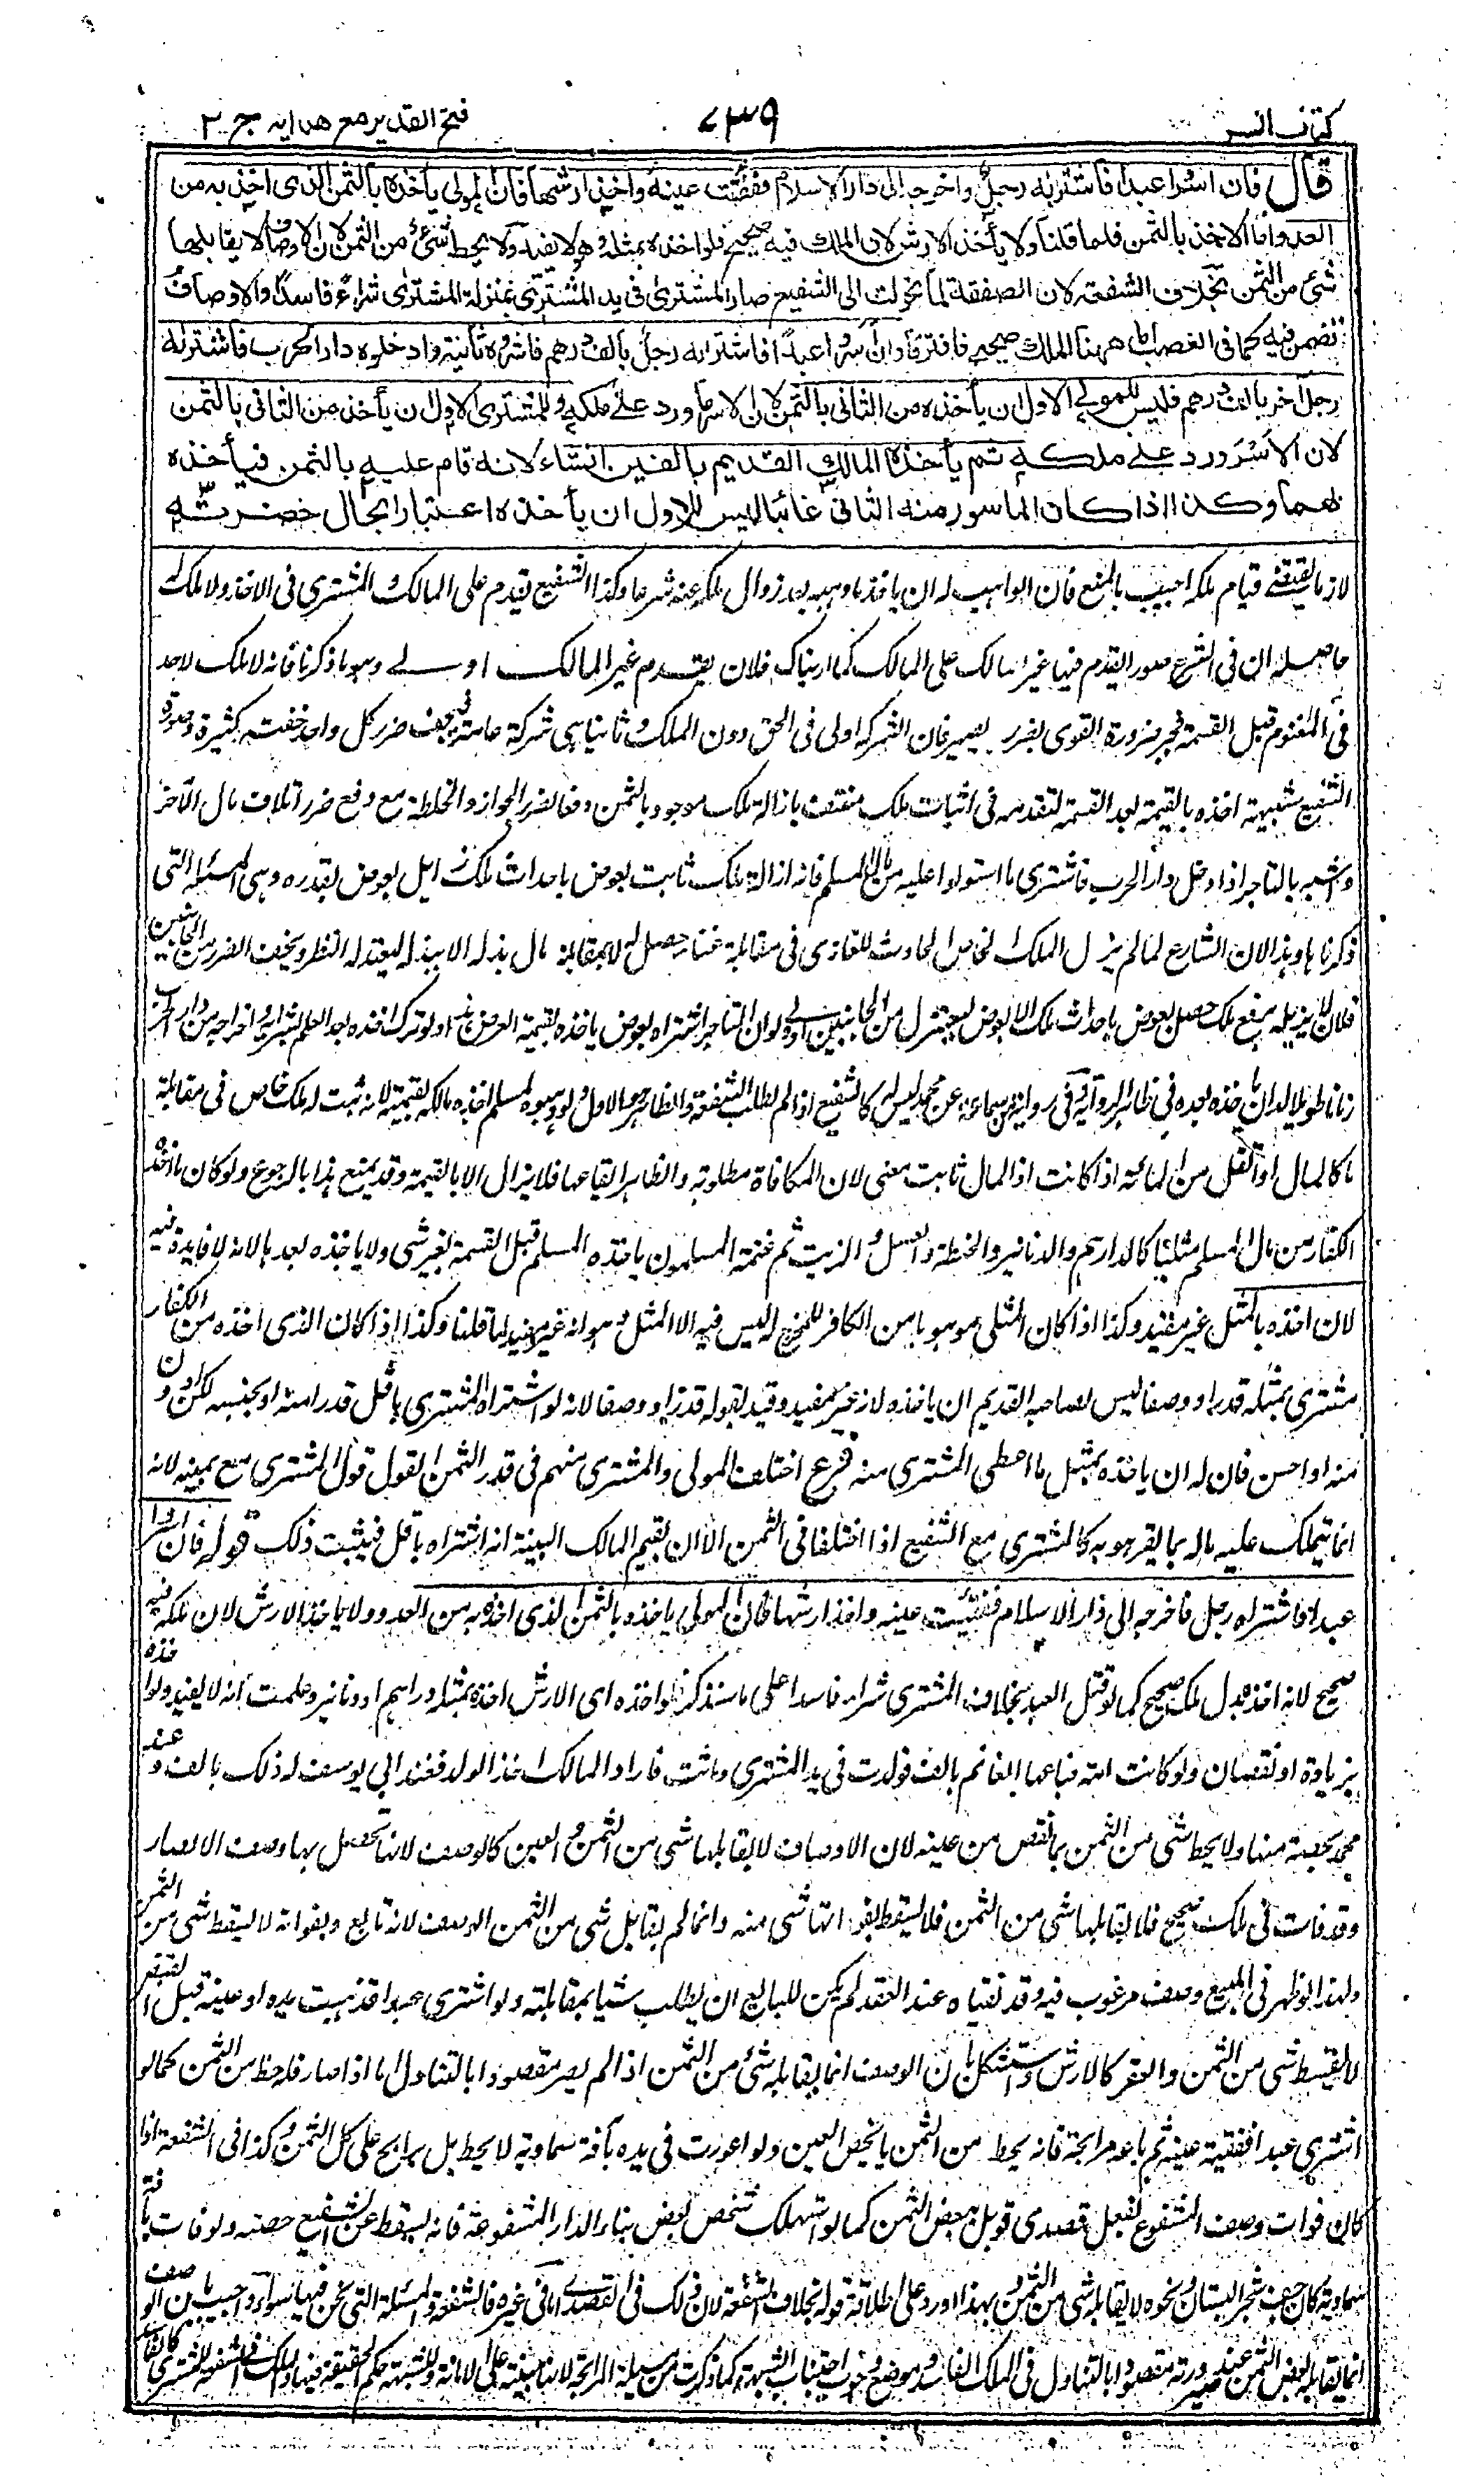 كتاب السير
٧٣٩
فتح القدير مع هدايه ج ٣
قال فان اسروا عبدا فاشتراه رجل واخرجه الى دار الاسلام ففقئت عينه واخذ ارشها فان المولى يأخذه بالثمن الذى اخذ به من
العدو اما الاخذ بالثمن فلما قلنا ولا يأخذ الارش لان الملك فيه صحيح فلو اخذه اخذه بمثله وهو لا يفيد ولا يحط شئ من الثمن لان الاوصاف لا يقابلها
شئ من الثمن بخلاف الشفعة لان الصفقة لما تحولت الى الشفيع صار المشترى فى يد المشترى بمنزلة المشترى شراء فاسدا والاوصاف
تضمن فيه كما فى الغصب اما ههنا الملك صحيح فافترقا وان اسروا عبدا فاشتراه رجل بالف درهم فاسروه ثانية وادخلوه دار الحرب فاشتراه
رجل اخر بالف درهم فليس للمولى الاول ان يأخذه من الثانى بالثمن لان الاسر ما ورد على ملكه وللمشترى الاول ان يأخذ من الثانى بالثمن
لان الاسر ورد على ملكه ثم يأخذه المالك القديم بالفين ان شاء لانه قام عليه بالثمن فيأخذه
بهما وكذا اذا كان الماسور منه الثانى غائبا ليس للاول ان يأخذه اعتبارا بحال حضرته
قيام ملكه اجيب بالمنع فان الواهب له ان ياخذ ما وهبه بعد زوال ملكه عنه شرعا وكذا الشفيع يقدم على المالك المشترى فى الاخذ ولا ملك له
حاصله ان فى الشرع صورا يقدم فيها غير المالك على المالك كما اريناك فلان يقدم غير المالك اولى وهو ما ذكرنا فانه لا ملك لاحد
فى المغنوم قبل القسمة فجبر ضرورة القوى بضرر يسير فان الشركة اولى فى الحق دون الملك وثانيا هى شركة عامة فيخف ضرر كل واحد خفة كثيرة وصورة
الشفيع شبيهة اخذه بالقيمة بعد القسمة لتقدمه فى اثبات ملك منتف بازالة ملك موجود بالثمن دفعا لضرر الجوار والخلطة مع دفع ضرر اتلاف مال الآخر
واشبه بالتاجر اذا دخل دار الحرب فاشترى ما استولوا عليه من مال المسلم فانه ازالة ملك ثابت بعوض باحداث ملك زايل بعوض بقدره وهى المسئلة التى
ذكرناها وهذا لان الشارع لما لم يزل الملك الخاص الحادث للغازى فى مقابلة غنائه حصل له لا بمقابلة مال بذله الا ببذله ليعتدل النظر ويخف الضرر من الجانبين
فلان لا يزيله برفع ملك حصل بعوض باحداث ملك الا بعوض ليعتدل من الجانبين اولى ولو ان التاجر اشتراه بعوض ياخذه بقيمة العرض ولو ترك اخذه بعد العلم بشرائه واخراجه من دار الحرب
زمانا طويلا له ان ياخذه بعده فى ظاهر الرواية وفى رواية ابن سماعة عن محمد ليس له كالشفيع اذا لم يطلب الشفعة والظاهر هو الاول ولو وهبوه لمسلم اخذه مالكه بقيمته لانه ثبت له ملك خاص فى مقابلة
اذا كانت اذ المال ثابت معنى لان المكافاة مطلوبة والظاهر ايقاعها فلا يزال الا بالقيمة وقد يمنع هذا بالرجوع ولو كان ما اخذ
الكفار من مال المسلم مثليا كالدراهم والدنانير والحنطة والعسل والزيت ثم غنمه المسلمون ياخذه المسلم قبل القسمة بغير شى ولا ياخذه بعدها لانه لا فايدة فيه
لان اخذه بالمثل غير مفيد وكذا اذا كان المثلى موهوبا من الكافر للمخرج له ليس فيه الا المثل وهو انه غير مفيد لما قلنا وكذا اذا كان الذى اخذه من الكفار
مشترى بمثله قدرا ووصفا ليس لصاحبه القديم ان ياخذه لانه غير مفيد وقيد بقوله قدرا ووصفا لانه لو اشتراه المشترى باقل قدرا منه او بجنسه لكن ادون
منه او احسن فان له ان ياخذه بمثل ما اعطى المشترى منه فرع اختلف المولى والمشترى منهم فى قدر الثمن القول قول المشترى مع يمينه لانه
انما يتملك عليه ماله بما يقر هو به كالمشترى مع الشفيع اذا اختلفا فى الثمن الا ان يقيم المالك البينة انه اشتراه باقل فيثبت ذلك قوله فان اسروا
عبدا فاشتراه رجل فاخرجه الى دار الاسلام ففقئت عينه واخذ ارشها فان المولى ياخذه بالثمن الذى اخذه به من العدو ولا ياخذ الارش لان ملكه فيه
صحيح لانه اخذه بدل ملك صحيح كما لو قتل العبد بخلاف المشترى شراء فاسدا على ما سنذكر ولو اخذه اى الارش اخذه بمثله دراهم او دنانير وعلمت انه لا يفيد ولو اخذه
بزيادة او نقصان ولو كانت امة فباعها الغانم بالف فولدت فى يد المشترى وماتت فاراد المالك اخذ الولد فعند ابى يوسف له ذلك بالف وعند
محمد بحصته منها ولا يحط شى من الثمن بما نقص من عينه لان الاوصاف لا يقابلها شى من الثمن والعين كالوصف لانها يحصل بها وصف الابصار
وقد فات فى ملك صحيح فلا يقابلها شى من الثمن فلا يسقط بفواتها شى منه وانما لم يقابل شى من الثمن الوصف لانه تابع وبفواته لا يسقط شى من الثمن
ولهذا لو ظهر فى المبيع وصف مرغوب فيه وقد نفياه عند العقد لم يكن للبايع ان يطلب شيا بمقابلته ولو اشترى عبدا فذهبت يده او عينه قبل القبض
لا يسقط شى من الثمن والعقر كالارش واستشكل بان الوصف انما لا يقابله شئ من الثمن اذا لم يصر مقصودا بالتناول اما اذا صار فله حظ من الثمن كما لو
اشترى عبدا ففقئت عينه ثم باعه مرابحة فانه يحط من الثمن ما يخص العين ولو اعورت فى يده بآفة سماوية لا يحط بل يرابح على كل الثمن وكذا فى الشفعة اذا
كان فوات وصف المشفوع بفعل قصدى قوبل ببعض الثمن كما لو استهلك شخص بعض بناء الدار المشفوعة فانه يسقط عن الشفيع حصته ولو فات بآفة
سماوية كان جف شجر البستان ونحوه لا يقابله شى من الثمن وبهذا اورد على اطلاقه قوله بخلاف الشفعة لان ذلك فى القصدى اما فى غيره فالشفعة والمسئلة التى نحن فيها سواء واجيب بان الوصف
انما يقابله بعض الثمن عند صيرورته مقصودا بالتناول فى الملك الفاسد وموضع وجوب اجتناب الشبهة كما ذكرت من مسئلة المرابحة لانها مبنية على الامانة وللشبهة حكم الحقيقة فيها والملك فى الشفعة للمشترى كالفاسد